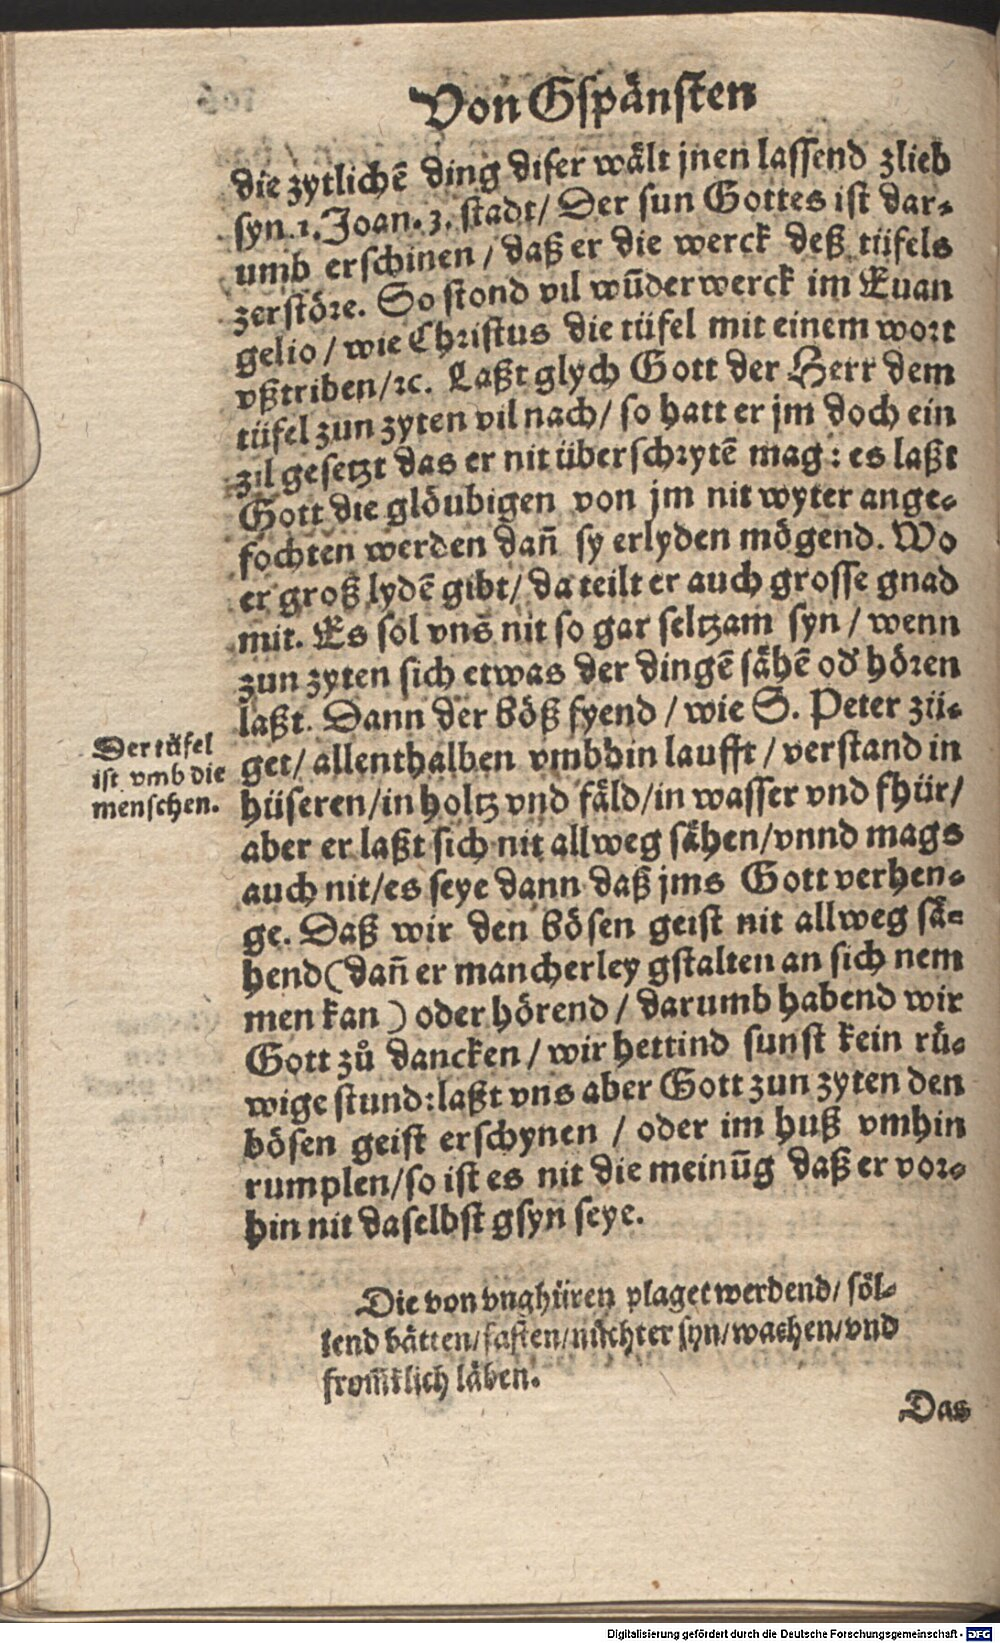 Von Gspänsten
die zytlichẽ ding diser wält jnen lassend zlieb
syn. 1. Joan. 3. stadt/ Der sun Gottes ist dar-
umb erschinen / daß er die werck deß tüfels
zerstöre. So stond vil wũderwerck im Euan
gelio / wie Christus die tüfel mit einem wort
vßtriben/ꝛc. Laßt glych Gott der Herr dem
tüfel zun zyten vil nach/ so hatt er jm doch ein
zil gesetzt das er nit überschrytẽ mag: es laßt
Gott die glöubigen von jm nit wyter ange-
fochten werden dañ sy erlyden mögend. Wo
er groß lydẽ gibt/ da teilt er auch grosse gnad
mit. Es sol vns nit so gar seltzam syn / wenn
zun zyten sich etwas der dingẽ sähẽ od' hören
laßt. Dann der böß fyend / wie S. Peter zü-
Der tüfel
ist vmb die
menschen.
get/ allenthalben vmbdin laufft / verstand in
hüseren/in holtz vnd fäld/in wasser vnd fhür/
aber er laßt sich nit allweg sähen/vnnd mags
auch nit/es seye dann daß jms Gott verhen-
ge. Daß wir den bösen geist nit allweg sä-
hend(dañ er mancherley gstalten an sich nem
men kan ) oder hörend / darumb habend wir
Gott zů dancken / wir hettind sunst kein rů-
wige stund:laßt vns aber Gott zun zyten den
bösen geist erschynen / oder im huß vmhin
rumplen/so ist es nit die meinũg daß er vor-
hin nit daselbst gsyn seye.
Die von vnghüren plaget werdend/ söl-
lend bätten/fasten/nüchter syn/wachen/vnd
from̃klich läben.
Das
Digitalisierung gefördert durch die Deutsche Forschungsgemeinschaft - DFG